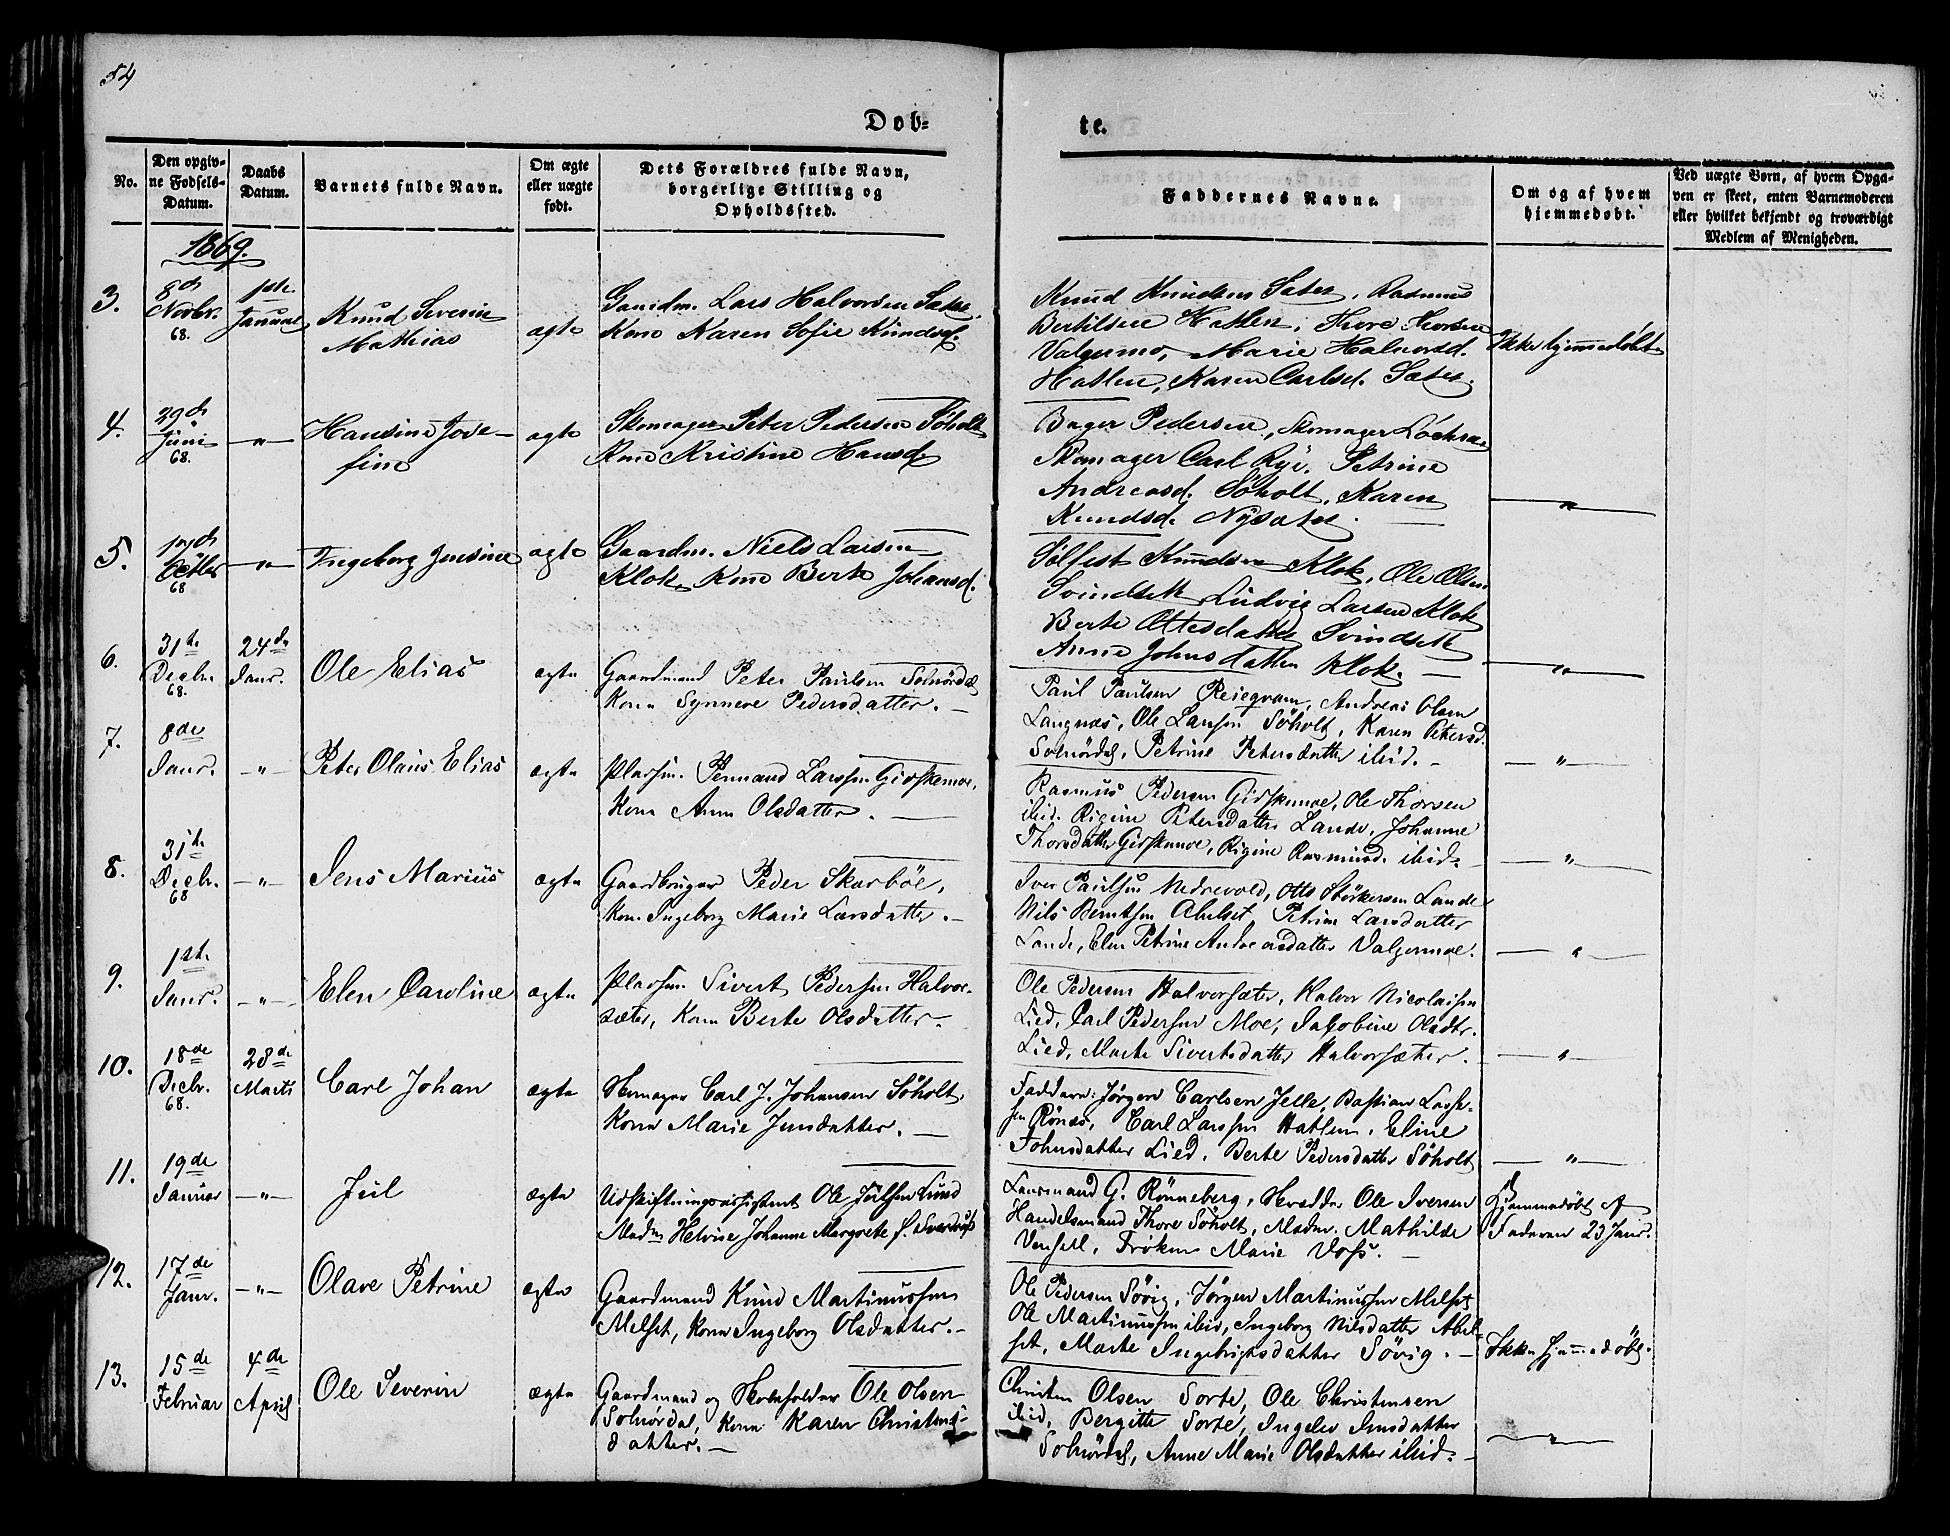 54
Døb-
te.
No.
Den opgiv-
ne Fødsels-
Datum.
Daabs
Datum.
Barnets fulde Navn.
Om ægte
eller uægte
født.
Dets Forældres fulde Navn,
borgerlige Stilling og
Opholdssted.
Faddernes Navne.
Om og af hvem
hjemmedøbt.
Ved uægte Børn, af hvem Opga-
ven er skeet, enten Barnemoderen
eller hvilket bekjendt og troværdigt
Medlem af Menigheden.
1869.
3.
8de
Novbr.
68.
1ste
Januar
Knud Severin
Mathias
ægte
Gaardm. Lars Halvorsen Sæter,
Kone Karen Sofie Knudsd.
Knud Knudsen Sæter, Rasmus
Bertilsen Hatlen, Thore Thorsen
Valgermo, Marie Halvorsd.
Hatlen, Karen Carlsd. Sæter.
Ikke hjemmedøbt
4.
29de
Juni
68.
–"–
Hansine Jose-
fine
ægte
Skomager Peter Pedersen Søholt
Kone Kristine Hansd.
Bager Pedersen, Skomager
Skomager Carl Rye, Petrine
Andreasd. Søholt, Karen
Knudsd. Nysæter.
–"–
5.
Octbr
68
–"–
Ingeborg Jensine
ægte
Gaardm. Niels Larsen
Klok, Kone Berte Johansd.
Sølfest Knudsen Klok, Ole Olsen
Svindseth Ludvig Larsen Klok
Berte Ottesdatter Svindseth
Anne Johnsdatter Klok.
–"–
6.
31te
Decbr.
68.
24de
Janr.
Ole Elias
ægte
Gaardmand Peter Paulsen Solnørdal
Kone Synneve Pedersdatter. –
Paul Paulsen Reiegvam, Andreas Olsen
Langnæs, Ole Larssen Søholt, Karen Petersd.
Solnørdal, Petrine Petersdatter ibid. –
–"–
7.
8de
Janr.
–"–
Peter Olaus Elias
ægte
Pladsm. Larssen Gidskemoe,
Kone Anne Olsdatter. –
Rasmus Pedersen Gidskemoe, Ole Thorsen
ibid. Rigine Petersdatter Lande, Johanne
Thorsdatter Gidskemoe, Rigine Rasmusd. ibid. –
–"–
8.
31te
Decbr.
68
–"–
Jens Marius
ægte
Gaardbruger Peder Skarbøe,
Kone Ingeborg Marie Larsdatter. –
Iver Paulsen Nedrevold, Otto Størkersen Lande
Nils Berntsen Abelset, Petrine Larsdatter
Lande, Elen Petrine Andreasdatter Valgermoe.
–"–
9.
1ste
Janr.
–"–
Elen Caroline
ægte
Pladsm. Sivert Pedersen Halvor-
sæter, Kone Berte Olsdatter. –
Ole Pedersen Halvorsæter, Halvor Nicolaisen
Lied, Carl Pedersen Moe, Jakobine Olsdtr.
Lied, Marte Sivertsdatter Halvorsæter.
–"–
10.
18de
Decbr.
68.
28de
Marts
Carl Johan
ægte
Carl J. Johansen Søholt,
Kone Marie Jensdatter. –
Faddere: Jørgen Carlsen Jelle, Bastian Lasse-
sen Rønæs, Carl Larssen Hatlen, Eline
Johnsdatter Lied, Berte Pedersdatter Søholt
–"–
11.
19de
Januar
–"–
Juel
ægte
Udskiftningsassistent Ole Juelsen Lund
Madm Helvine Johanne Margrete f. Sverdrup
Lensmand G. Rønneberg, Ole Iversen
Handelsmand Thore Søholt, Madm. Mathilde
Frøken Marie Voss. –
Hjemmedøbt af
Faderen 23 Janr.
12.
17de
Janr.
–"–
Olave Petrine
ægte
Gaardmand Knud Martinussen
Melset, Kone Ingeborg Olsdatter. –
Ole Pedersen Søvig, Jørgen Martinussen Melset
Ole Martinussen ibid, Ingeborg Nilsdatter Abel-
set, Marte Ingebrigtsdatter Søvig. –
Ikke hjemmedøbt.
13.
15de
Februar
4de
April
Ole Severin
ægte
Gaardmand og Ole Olsen
Solnørdal, Kone Karen Christens-
datter. –
Christen Olsen Sorte, Ole Christensen
ibid, Bergitte Sorte, Jensdatter
Solnørdal, Anne Marie Olsdatter ibid. –
–"–